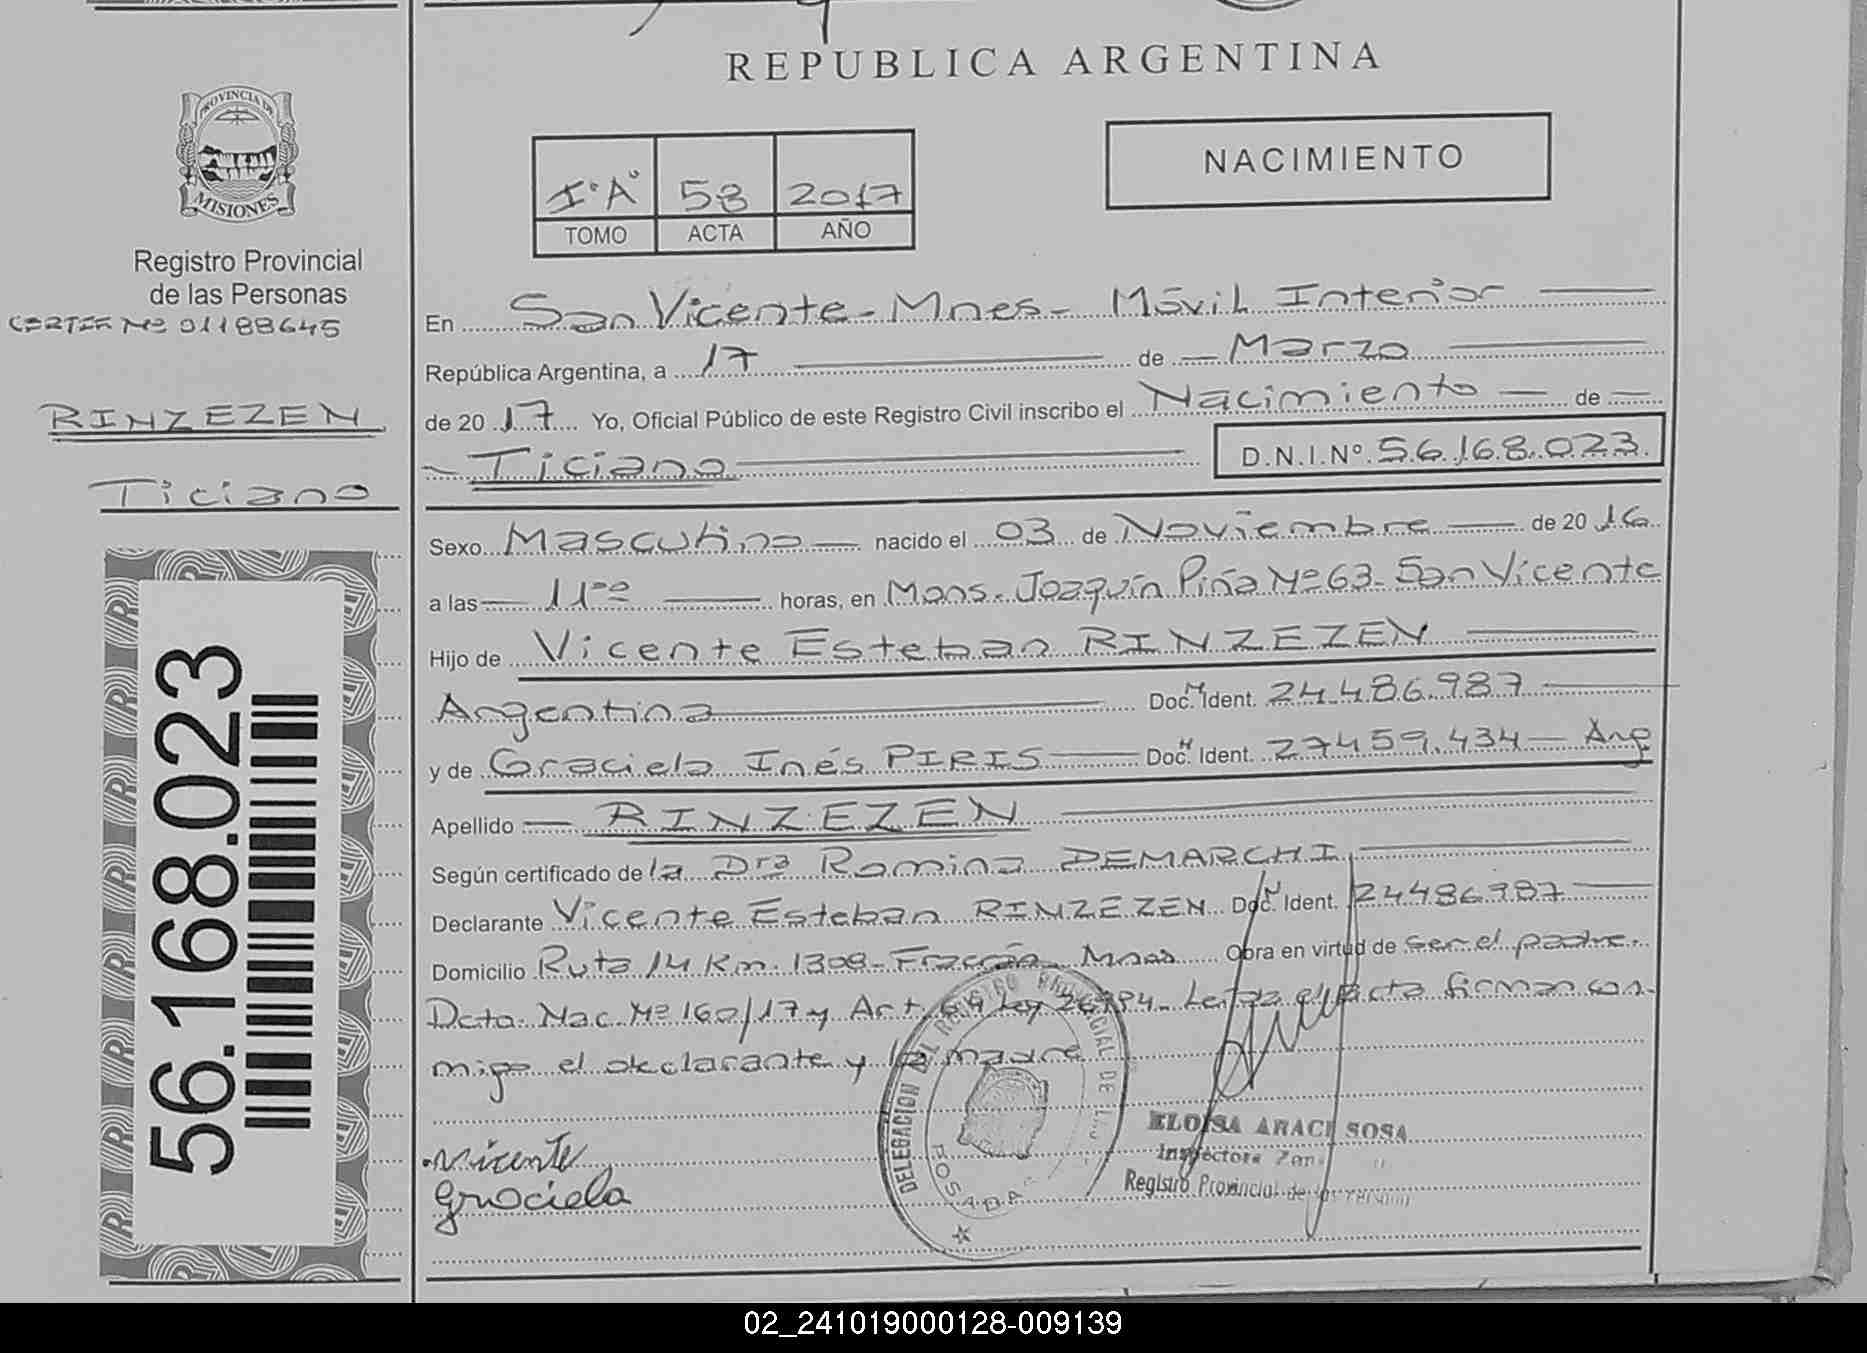 REPUBLICA ARGENTINA
PROVINCIA DE
MISIONES
Registro Provincial
de las Personas
CERTIF Nº 01188645
RINZEZEN
Ticiano
56.168.023
Iº Aº 58 2017
TOMO ACTA AÑO
NACIMIENTO
En San Vicente - Mnes - Móvil Interior
República Argentina, a 17 de Marzo
de 20 17 Yo, Oficial Público de este Registro Civil inscribo el Nacimiento de
Ticiano D.N.I.Nº 56.168.023
Sexo Masculino nacido el 03 de Noviembre de 20 16
a las 11ºº horas, en Mons. Joaquín Piña Nº 63 - San Vicente
Hijo de Vicente Esteban RINZEZEN
Argentina Doc. N Ident. 24.486.987
y de Graciela Inés PIRIS Doc. N Ident. 27.459.434 - Arg
Apellido RINZEZEN
Según certificado de la Dra Romina DEMARCHI
Declarante Vicente Esteban RINZEZEN Doc. N Ident. 24.486.987
Domicilio Ruta 14 Km. 1308 - Fracrán Mnes Obra en virtud de ser el padre.
Dcto. Nac. Nº 160/17 y Art. Ley 26994 - Leída el acta firman con-
migo el declarante y la madre
Vicente
Graciela
DELEGACION DEL REGISTRO PROVINCIAL DE
POSADAS
ELOISA ARACI SOSA
Inspectora
Registro Provincial de las
02_241019000128-009139